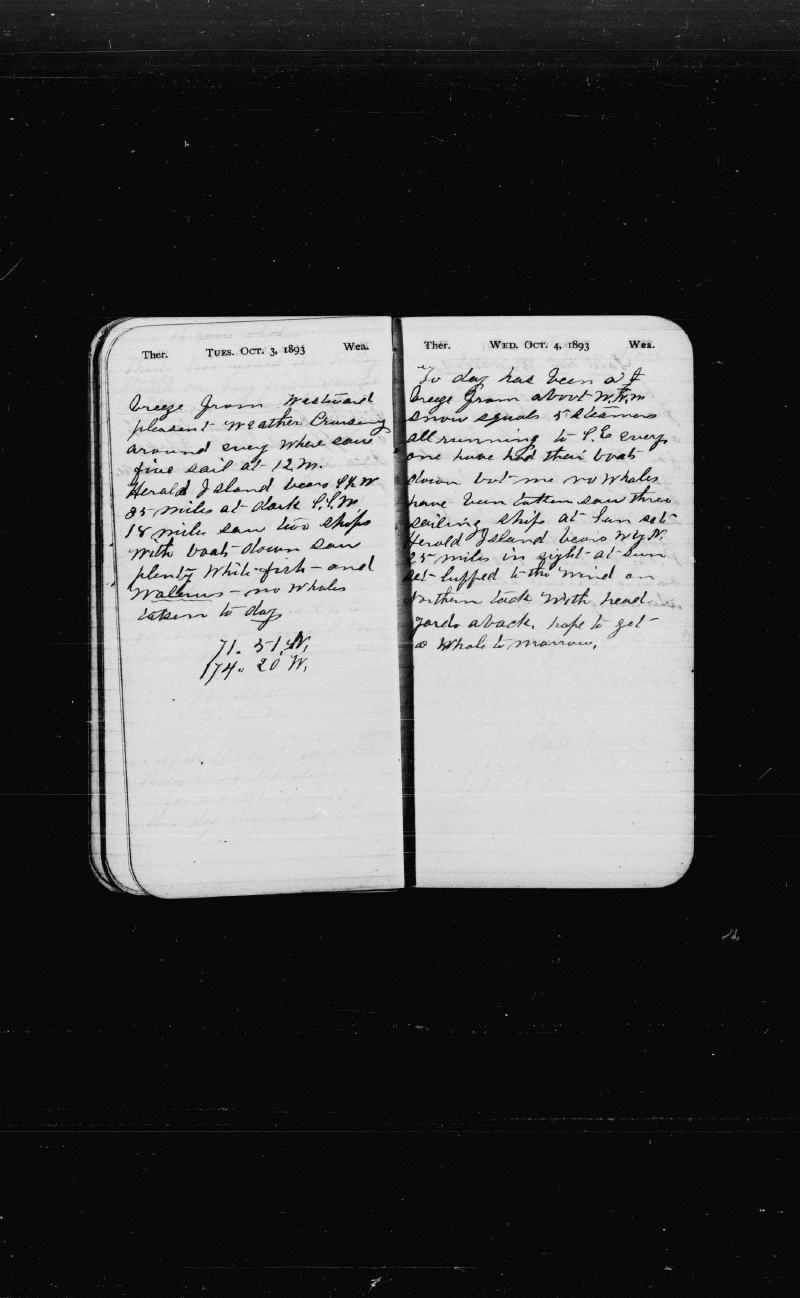 Ther. TUES. OCT. 3, 1893 Wea.
breeze from Westward
pleasent Weather Cruising
around every Where saw
five sail at 12 M.
Herald Island bears
35 miles at dark S.S.W
18 miles saw two ships
With boats down saw
plenty White fish and
Walerus - no Whales
taken to day
71. 51. N,
174. 20 W,
Ther. WED. OCT. 4, 1893 Wea.
To day has been a
breeze from about
snow squals 5 steamers
all running to S.E every
one have had their boats
down but me no Whales
have been tatken saw three
sailing ships at Sun set
Herald Island bears W by N.
25 miles in sight at Sun
set luffed to the Wind on
northern tack With head
yards aback. hope to get
a Whale to morrow.